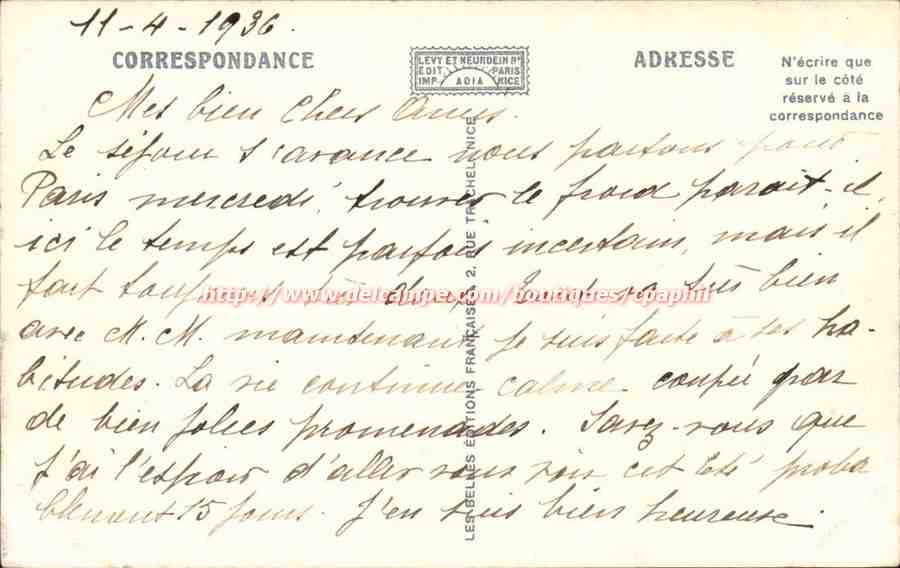 11-4-1936.
CORRESPONDANCE
LEVY ET NEURDEIN Rs
EDIT PARIS
IMP. ADIA NICE
ADRESSE
N'écrire que
sur le côté
réservé à la
correspondance
Mes bien chers Amis.
Le séjour s'avance nous partons pour
Paris mercredi, trouver le froid parait-il,
ici le temps est parfois incertain, mais il
fait toujours très doux. Tout va très bien
avec M. M. maintenant je suis faite à ses ha-
bitudes. La vie continue calme coupée par
de bien jolies promenades. Savez-vous que
j'ai l'espoir d'aller vous voir cet Eté proba
blement 15 jours. J'en suis bien heureuse.
LES BELLES ÉDITIONS FRANÇAISES, 2, RUE TRACHEL, NICE
http://www.delcampe.com/boutiques/cpaphil